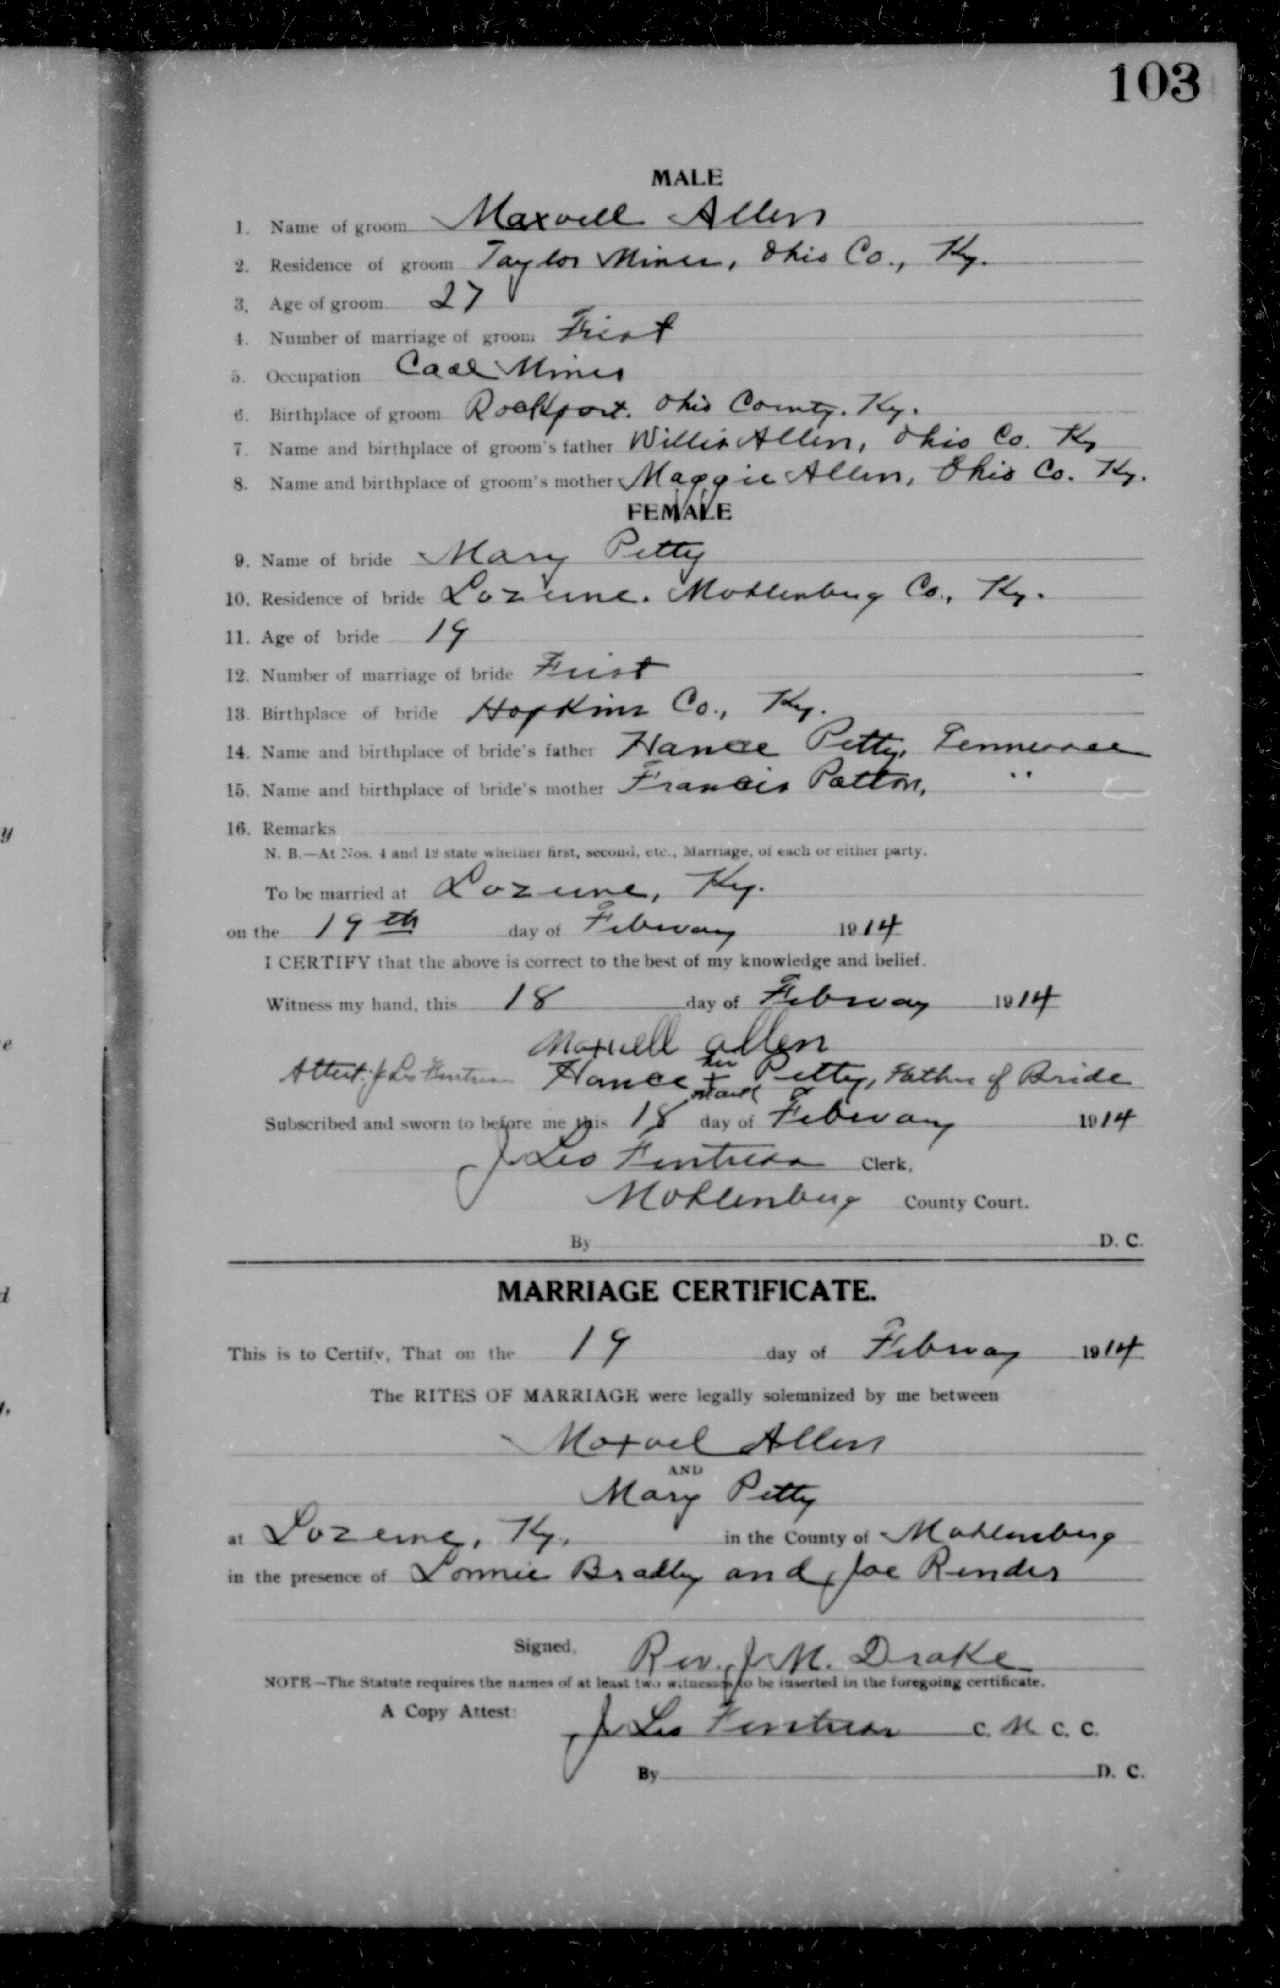 103
MALE
1. Name of groom Maxwell Allen
2. Residence of groom Taylor Mines, Ohio Co., Ky.
3. Age of groom 27
4. Number of marriage of groom First
5. Occupation Coal Miner
6. Birthplace of groom Rockport. Ohio County. Ky.
7. Name and birthplace of groom's father Willis Allen, Ohio Co. Ky
8. Name and birthplace of groom's mother Maggie Allen, Ohio Co. Ky.
FEMALE
9. Name of bride Mary Petty
10. Residence of bride Luzerne. Muhlenberg Co., Ky.
11. Age of bride 19
12. Number of marriage of bride First
13. Birthplace of bride Hopkins Co., Ky.
14. Name and birthplace of bride's father Hance Petty, Tennessee
15. Name and birthplace of bride's mother Francis Patton, "
16. Remarks
N. B.—At Nos. 4 and 12 state whether first, second, etc., Marriage, of each or either party.
To be married at Luzerne, Ky.
on the 19th day of February 1914
I CERTIFY that the above is correct to the best of my knowledge and belief.
Witness my hand, this 18 day of February 1914
Maxwell Allen
Attest: J Leo Fentress Hance his + mark Petty, Father of Bride
Subscribed and sworn to before me this 18 day of February 1914
J Leo Fentress Clerk,
Muhlenberg County Court.
By D. C.
MARRIAGE CERTIFICATE.
This is to Certify, That on the 19 day of February 1914
The RITES OF MARRIAGE were legally solemnized by me between
Maxwel Allen
AND
Mary Petty
at Luzerne, Ky, in the County of Muhlenberg
in the presence of Lonnie Bradley and Joe Render
Signed, Rev. J. M. Drake
NOTE—The Statute requires the names of at least two witnesses to be inserted in the foregoing certificate.
A Copy Attest: J Leo Fentress C. M. C. C.
By D. C.